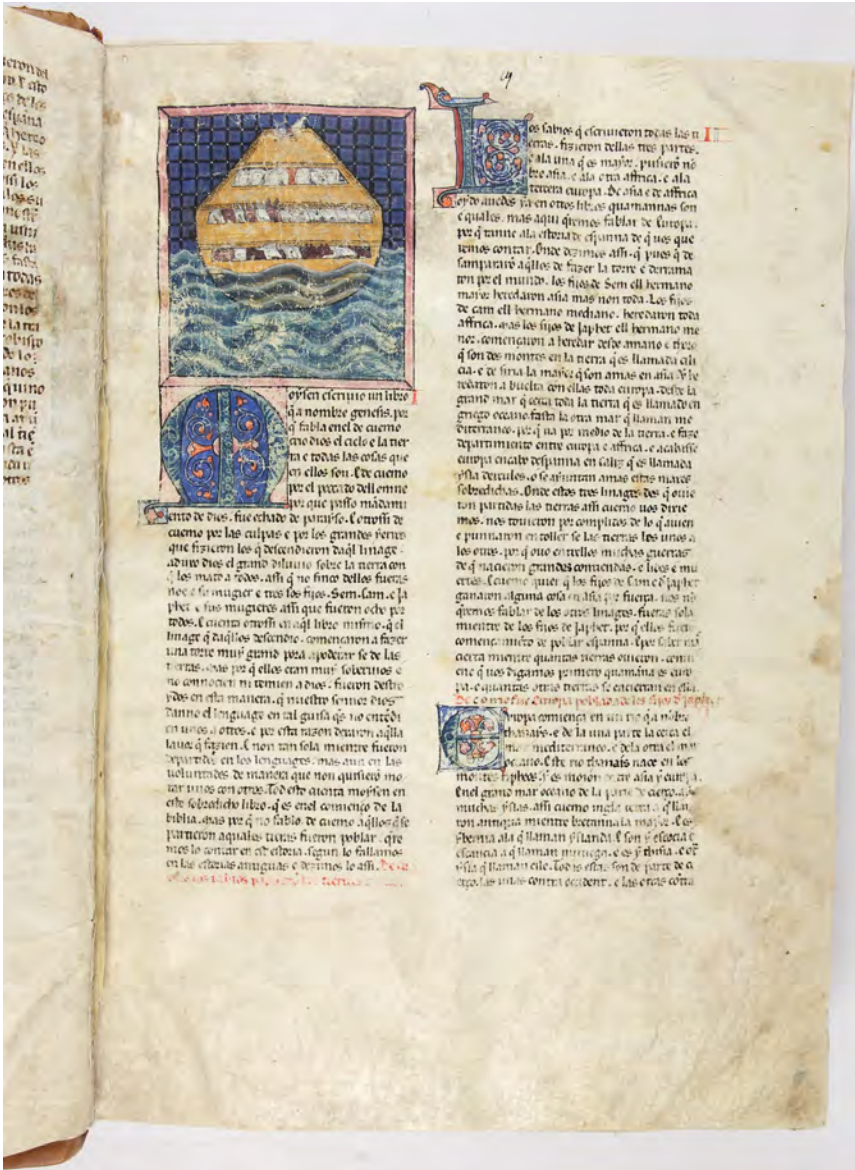 oysen escriuio un libro I
q̃ a nombre genesis. por
q̃ fabla en el de cuemo
crio dios el cielo e la tier
ra e todas las cosas que
en ellos son. E de cuemo
por el peccado dell omne
por que passo mãdami
ento de dios. fue echado de parayso. E otrossi de
cuemo por las culpas e por los grandes yerros
que fizieron los q̃ descendieron daq̃l linage.
aduro dios el grand diluuio sobre la tierra con
q̃ los mato a todos. assi q̃ no finco dellos fueras
noe e so mugier e tres sos fijos. Sem. Cam. e Ja
phet e sus mugieres assi que fueron ocho por
todos. E cuenta otrossi en aq̃l libro mismo. q̃ el
linage q̃ daq̃llos descendio. començaron a fazer
una torre muy grand pora apoderar se de las
tierras. mas por q̃ ellos eran muy soberuios e
no connocien ni temien a dios. fueron destro
ydos en esta manera. q̃ nuestro sennor dios
danne el lenguage en tal guisa q̃s no entẽdi
en unos a otros. e por esta razon dexaron aq̃lla
lauor q̃ fazien. E non tan sola mientre fueron
departidos en los lenguages. mas aun en las
uoluntades de manera que non quisierõ mo
rar unos con otros. Tod esto cuenta moysen en
este sobredicho libro. q̃ es en el comienço de la
biblia. mas por q̃ no fablo. de cuemo aq̃llos q̃ se
partieron a quales tierras fueron poblar. q̃re
mos lo contar en est estoria. segun lo fallamos
en las estorias antiguas e dezimos lo assi. De co
mo los sabios
os sabios q̃ escriuieron todas las ti II
erras. fizieron dellas tres partes.
e ala una q̃ es mayor. pusierõ nõ
bre asia. e ala otra affrica. e ala
tercera europa. De asia e de affrica
oydo auedes ya en otros libros quamannas son
e quales. mas aqui q̃remos fablar de Europa.
por q̃ tanne ala estoria de espanna de q̃ uos que
remos contar. Onde dezimos assi. q̃ pues q̃ de
sampararõ aq̃llos de fazer la torre e derrama
ron por el mundo. los fijos de Sem ell hermano
mayor heredaron asia mas non toda. Los fijos
de cam ell hermano mediano. heredaron toda
affrica. mas los fijos de Japhet ell hermano me
nor. començaron a heredar desde amano e thoro
q̃ son dos montes en la tierra q̃ es llamada cili
cia. e de siria la mayor q̃ son amas en asia. y he
redaron a buelta con ellas toda europa. desde la
grand mar q̃ cerca toda la tierra q̃ es llamado en
griego oceano. fasta la otra mar q̃ llaman me
diterraneo. por q̃ ua por medio de la tierra. e faze
departimiento entre europa e affrica. e acabasse
europa en cabo despanna en caliz q̃ es llamada
ysla dercules. o se ayuntan amas estas mares
sobredichas. Onde estos tres linages dos q̃ ouie
ron partidas las tierras assi cuemo uos dixie
mos. nos touieron por complidos de lo q̃ auien
e punnaron en toller se las tierras los unos a
los otros. por q̃ ouo entrellos muchas guerras
de q̃ nacieron grandes contiendas. e lides e mu
ertes. E cuemo quier q̃ los fijos de Cam e d Japhet
ganaron alguna cosa en asia por fuerça. nos no
q̃remos fablar de los otros linages. fueras sola
mientre de los fijos de Japhet. por q̃ ellos fueron
començamiẽto de poblar espanna. E por saber mas
cierta mientre quantas tierras ouieron. conui
ene q̃ uos digamos primero quamãna es euro
pa. e quantas otras tierras se encierran en ella.
De como fue Europa poblada de los fijos d japhet
uropa comiença en un rio q̃ a nõbre
thanays. e de la una parte la cerca el
mar mediterraneo. e dela otra el mar
oceano. Este rio thanais nace en los
montes ripheos. y es moion entre asia y europa.
En el grand mar oceano de la parte de cierço. a
muchas yslas. assi cuemo ingla terra a q̃ lla
ron antigua mientre bretanna la mayor. E es
ybernia ala q̃ llaman yslanda. E son y escocia e
escancia a q̃ llaman nuruega. e es y thisia. e otr
ysla q̃ llaman cile. Todas estas son de parte de ci
erço. las unas contra occident. e las otras cõtra